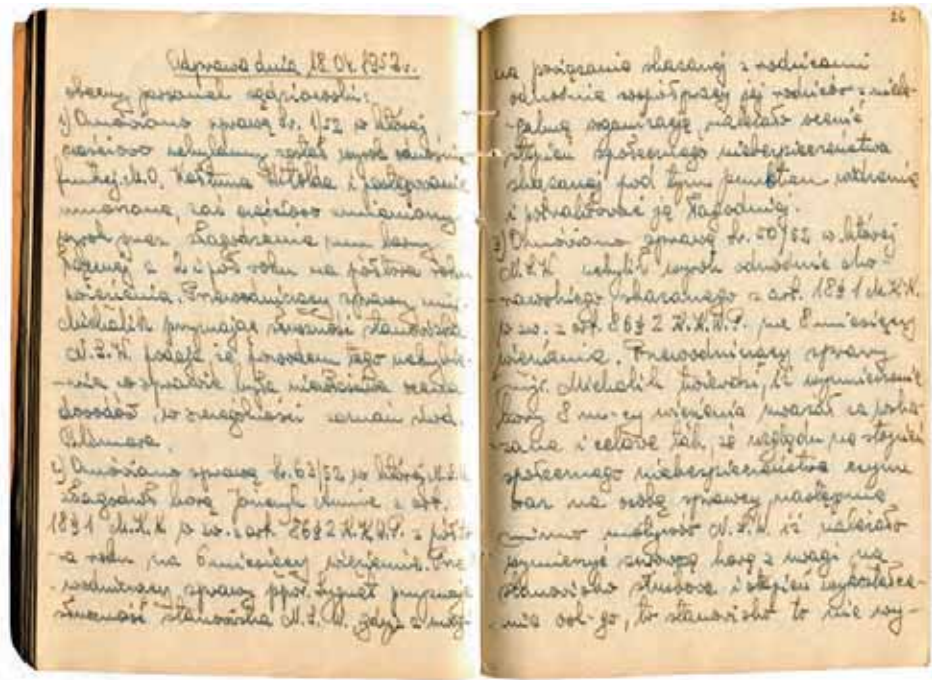 Odprawa dnia 18.04.1952 r.
obecny personel sędziowski:
1) Omówiono sprawę Sr. 1/52 w której
częściowo uchylony został wyrok odnośnie
funkcj. M.O. Witolda i postępowanie
umorzono, zaś częściowo zmieniony
wyrok przez złagodzenie mu kary
z 2 i pół roku na półtora roku
więzienia. Przewodniczący sprawy mjr.
Michalik przyznając słuszność stanowiska
N.S.W. podaje że powodem tego uchybie-
-nia w sprawie była niewłaściwa ocena
dowodów, w szczególności zeznań świad.
2) Omówiono sprawę Sr. 63/52 w której N.S.W.
złagodził karę Annie z art.
18§1 M.K.K. w zw. z art. 86§2 K.K.W.P. z półto-
-ra roku na 6 miesięcy więzienia. Prze-
-wodniczący sprawy ppor. Sygnet przyznaje
słuszność stanowiska N.S.W., gdyż z uwagi
26
na powiązania skazanej z rodzicami
odnośnie współpracy jej rodziców z niele-
-galną organizacją, należało ocenić
stopień społecznego niebezpieczeństwa
skazanej pod tym punktem widzenia
i potraktować ją łagodniej.
3) Omówiono sprawę Sr. 50/52 w której
N.S.W. uchylił wyrok odnośnie
skazanego z art. 18§1 M.K.K.
w zw. z art. 86§2 K.K.W.P. na 8 miesięcy
więzienia. Przewodniczący sprawy
mjr. Michalik twierdzi, iż wymierzenie
kary 8 m-cy więzienia uważał za wska-
-zane i celowe tak, ze względu na stopień
społecznego niebezpieczeństwa czynu
oraz na osobę sprawcy, następnie
mimo motywów N.S.W. iż należało
wymierzyć surowszą karę z uwagi na
stanowisko służbowe i stopień wykształce-
-nia osk-go, to stanowisko to nie wy-